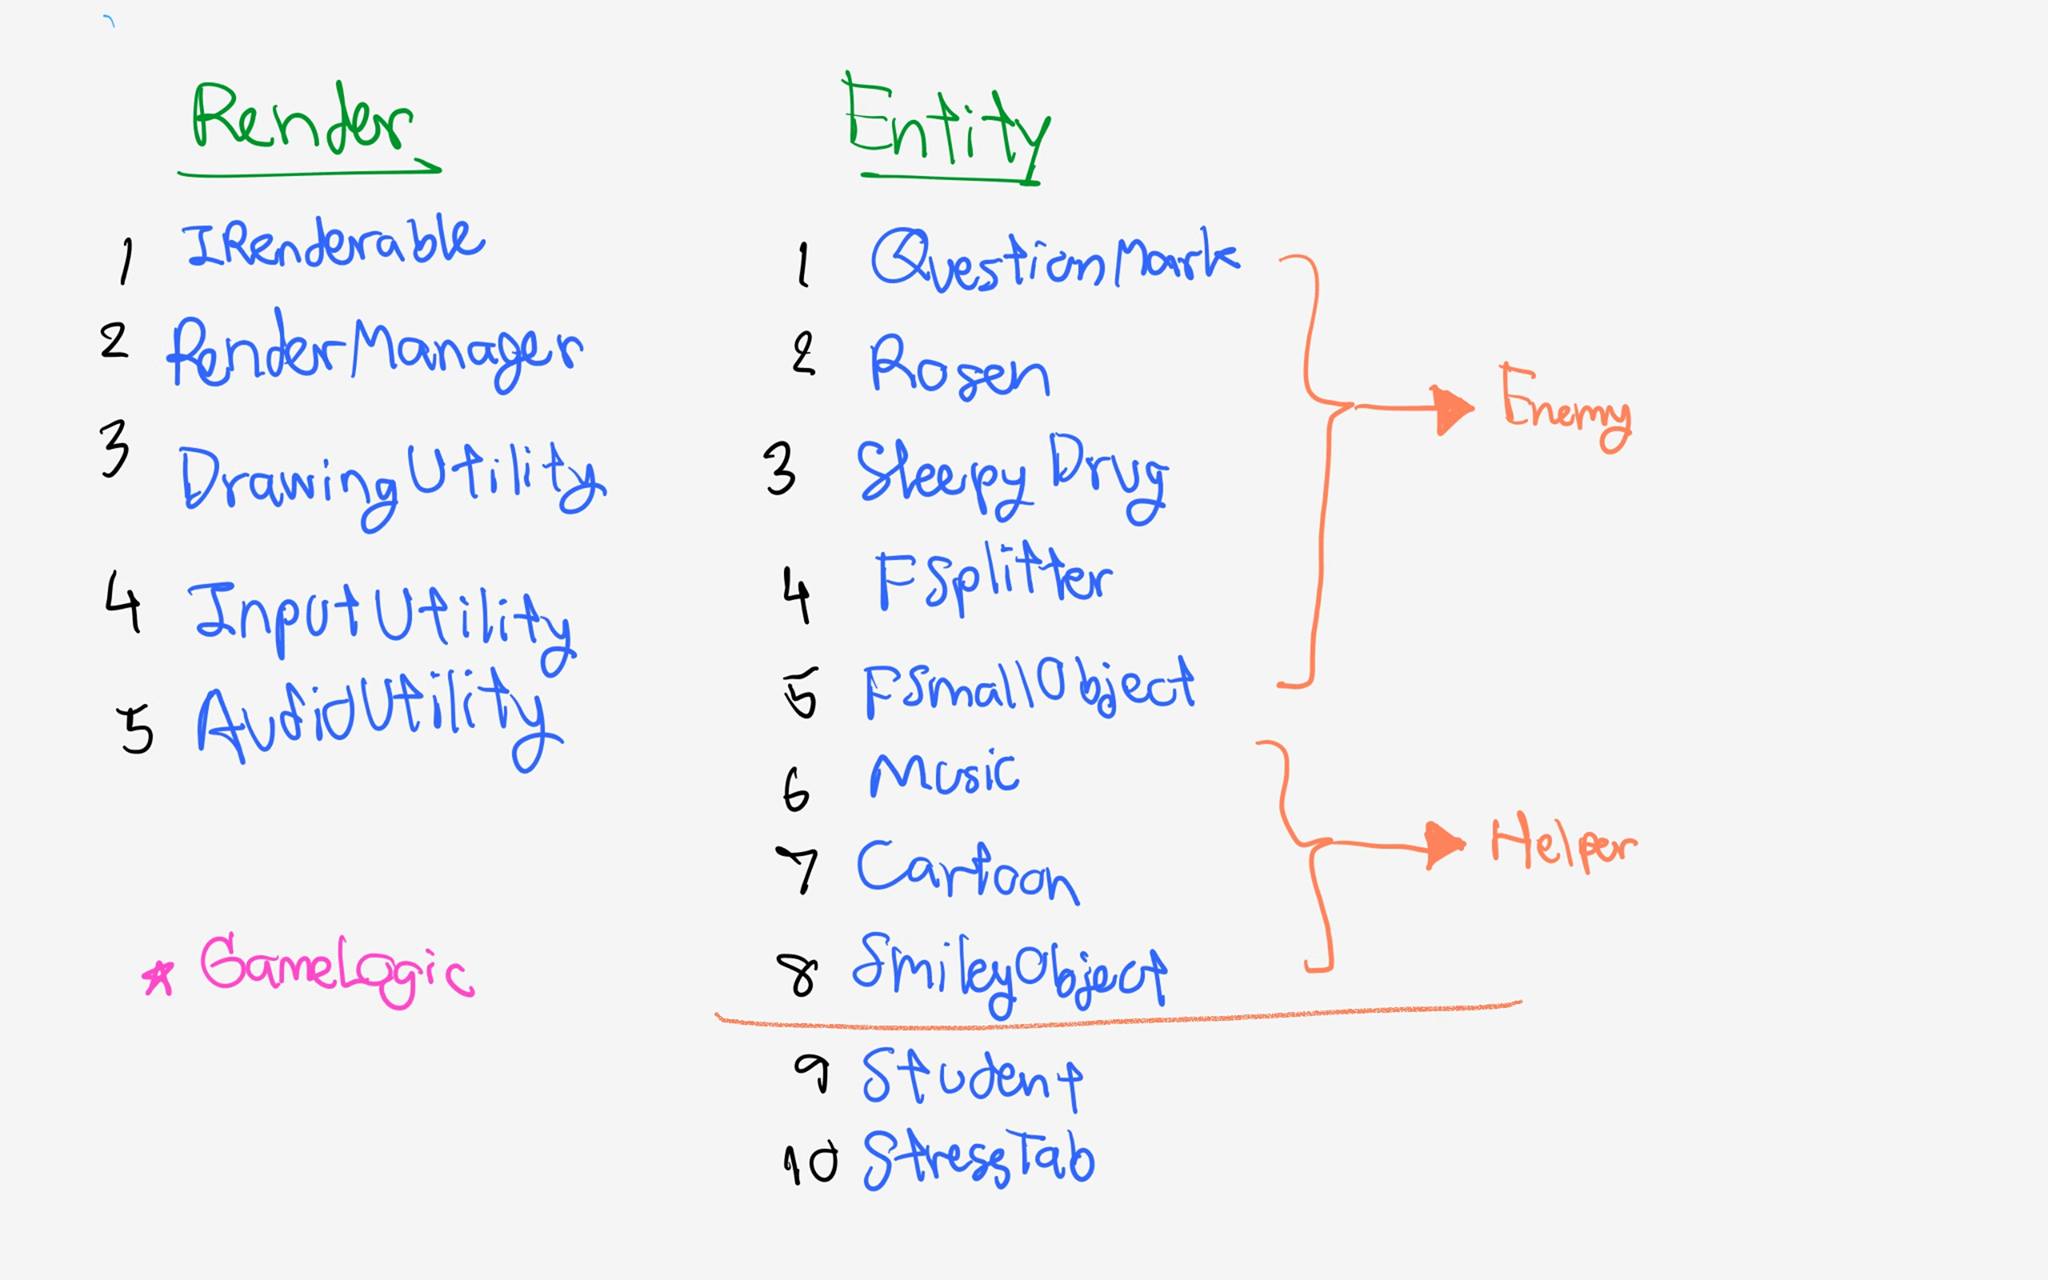 Render
1 IRenderable
2 RenderManager
3 DrawingUtility
4 InputUtility
5 AudioUtility
* GameLogic
Entity
1 QuestionMark
2 Rosen
3 SleepyDrug
4 FSplitter
5 FSmallObject
Enemy
6 Music
7 Cartoon
8 SmileyObject
Helper
9 Student
10 StressTab